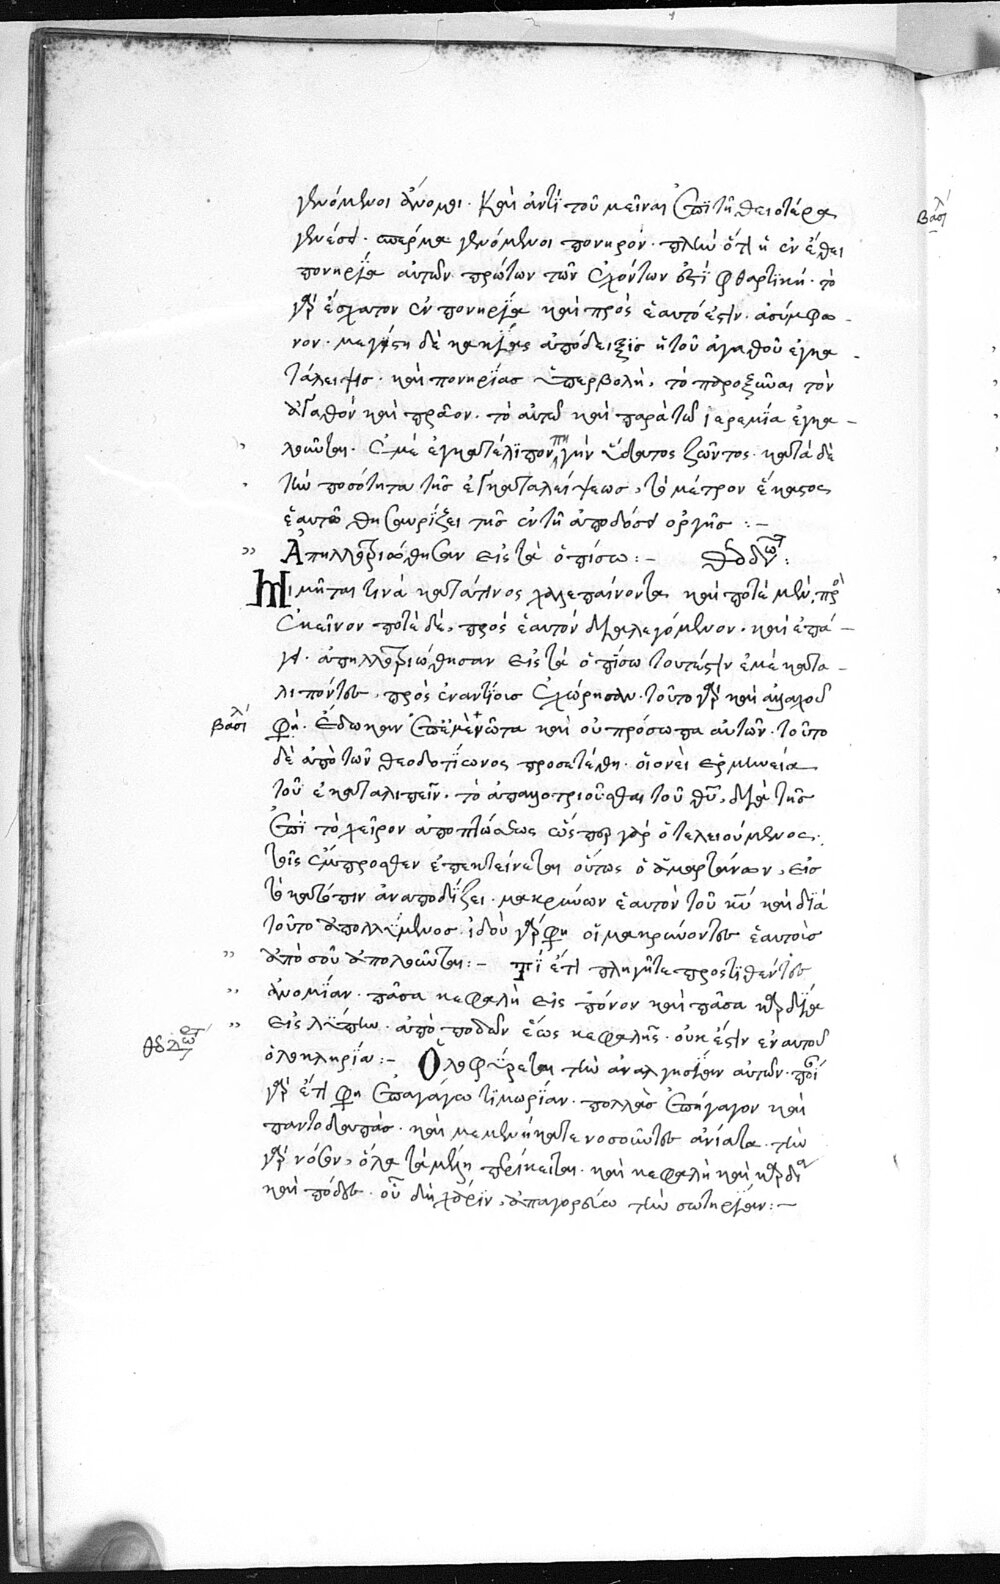 γενόμενοι ἄνομοι· Καὶ ἀντὶ τοῦ μεῖναι ἐπὶ τῆ θειοτέρα
γενέσει· σπέρμα γενόμενοι πονηρόν· πλὴν ὅτι ἡ ἐν ἔθει
πονηρία αὐτῶν πρώτων τῶν ἐχόντων ἐστὶ φθαρτική· τὸ
γὰρ ἔσχατον ἐν πονηρία καὶ πρὸς ἑαυτό ἐστιν ἀσύμφω
νον· μεγίστη δὲ κακίας ἀπόδειξις ἡ τοῦ ἀγαθοῦ ἐγκα
τάλειψις· καὶ πονηρίας ὑπερβολή, τὸ παροξῦναι τὸν
ἀγαθὸν καὶ πρᾶον· τὸ αὐτὸ καὶ παρὰ τῶ ϊερεμία ἐγκα
λοῦνται· Ἐμὲ ἐγκατέλιπον πηγὴν ὕδατος ζῶντος· κατὰ δὲ
τὴν ποσότητα τῆς ἐγκαταλείψεως, τὸ μέτρον ἕκαστος
ἑαυτῶ θησαυρίζει τῆς ἐν τῆ ἀποδόσει ὀργῆς :–
" Ἀπηλλοτριώθησαν εἰς τὰ ὀπίσω :– Θεοδώ :
Μιμῆται τινὰ κατά τινος χαλεπαίνοντα καὶ ποτὲ μὲν, πρὸς
ἐκεῖνον ποτὲ δὲ, πρὸς ἑαυτὸν διαλεγόμενον· καὶ ἐπά
γει· ἀπηλλοτριώθησαν εἰς τὰ ὀπίσω τουτέστιν ἐμὲ κατα
λιπόντες, πρὸς ἐναντίοις ἐχώρησαν· τοῦτο γὰρ καὶ ἀλλαχοῦ
βασί φη· Ἔδωκαν ἐπ' ἐμὲ νῶτα καὶ οὐ πρόσωπα αὐτῶν· τοῦτο
δὲ ἀπὸ τῶν θεοδοτίωνος προσετέθη· οἱονεὶ ἑρμηνεία
τοῦ ἐγκαταλιπεῖν· τὸ ἀπαλλοτριοῦσθαι τοῦ θυ, διὰ τῆς
ἐπὶ τὸ χεῖρον ἀποπτώσεως ὥσπερ γὰρ ὁ τελειούμενος
τοῖς ἔμπροσθεν ἐπεκτείνεται οὕτως ὁ ἁμαρτάνων, εἰς
τὸ κατόπιν ἀναποδίζει· μακρύνων ἑαυτὸν τοῦ κυ καὶ διὰ
τοῦτο ἀπολλύμενος· ἰδοὺ γὰρ φη οἱ μακρύνοντες ἑαυτοὺς
" ἀπὸ σοῦ ἀπολοῦνται :– Τί ἔτι πληγῆτε προστιθέντες
" ἀνομίαν· πᾶσα κεφαλὴ εἰς πόνον καὶ πᾶσα καρδία
" εἰς λύπην· ἀπὸ ποδῶν ἕως κεφαλῆς· οὐκ ἔστιν ἐν αὐτῶ
ὁλοκληρία :– Ὀλοφύρεται τὴν ἀναλγησίαν αὐτῶν· ποί
γὰρ ἔτι φη ἐπαγάγω τιμωρίαν· πολλὰς ἐπήγαγον καὶ
παντοδαπὰς· καὶ μεμενήκατε νοσοῦντες ἀνίατα· τὴν
γὰρ νόσον, ὅλα τὰ μέλη περίκειται· καὶ κεφαλὴ καὶ καρδία
καὶ πόδες· οὗ δὴ χάριν, ἀπαγορεύω τὴν σωτηρίαν :–
βασί